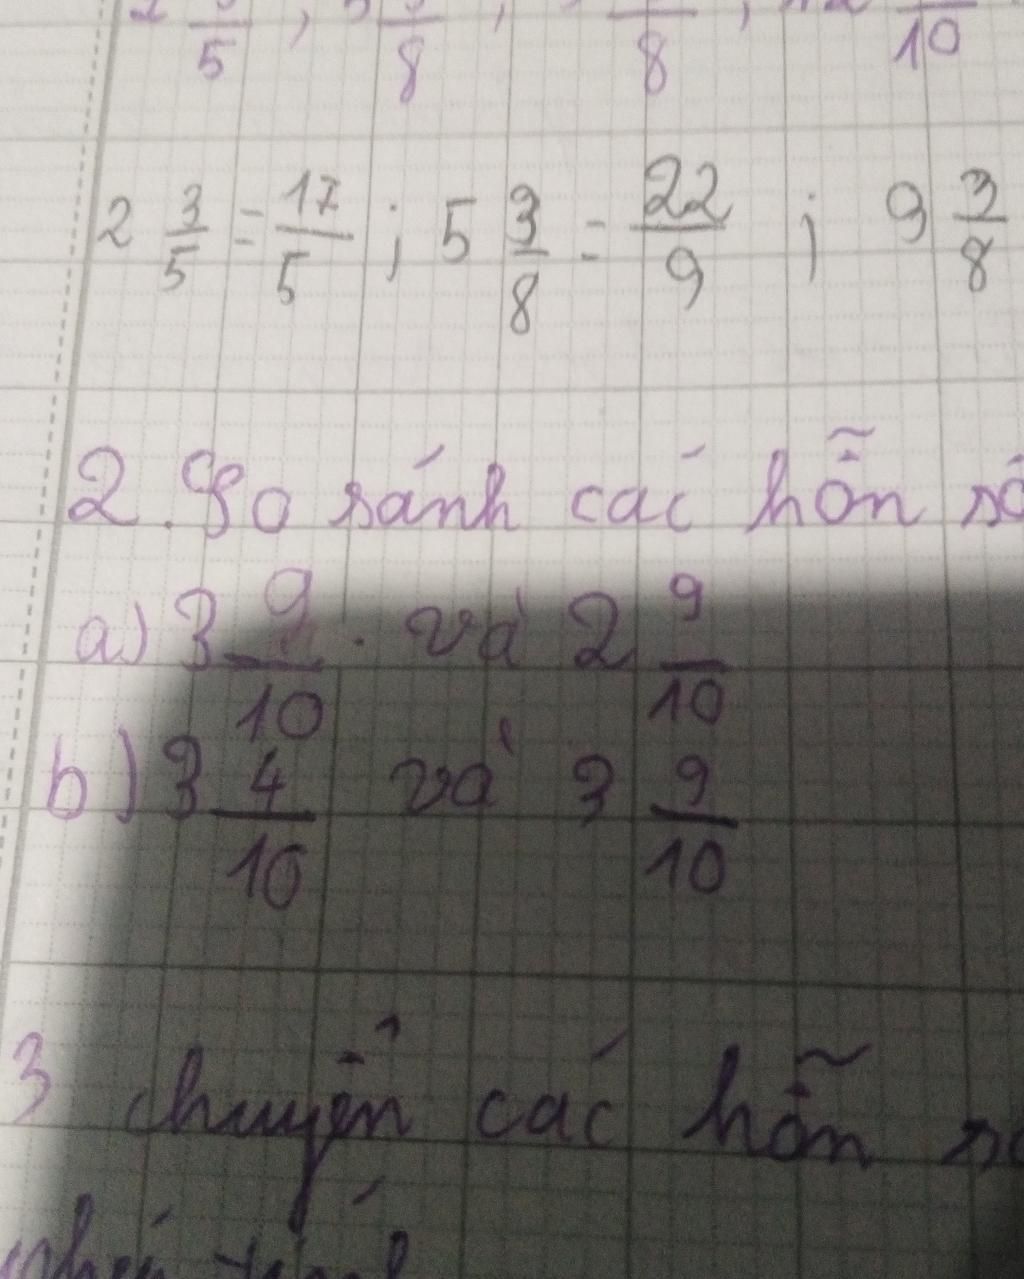 5 ; 8 ; 8 ; 10
2 3/5 = 17/5 ; 5 3/8 = 22/9 ; 9 3/8
2. So sánh các hỗn số
a) 3 9/10 . và 2 9/10
b) 3 4/10 và 3 9/10
3 chuyển các hỗn số